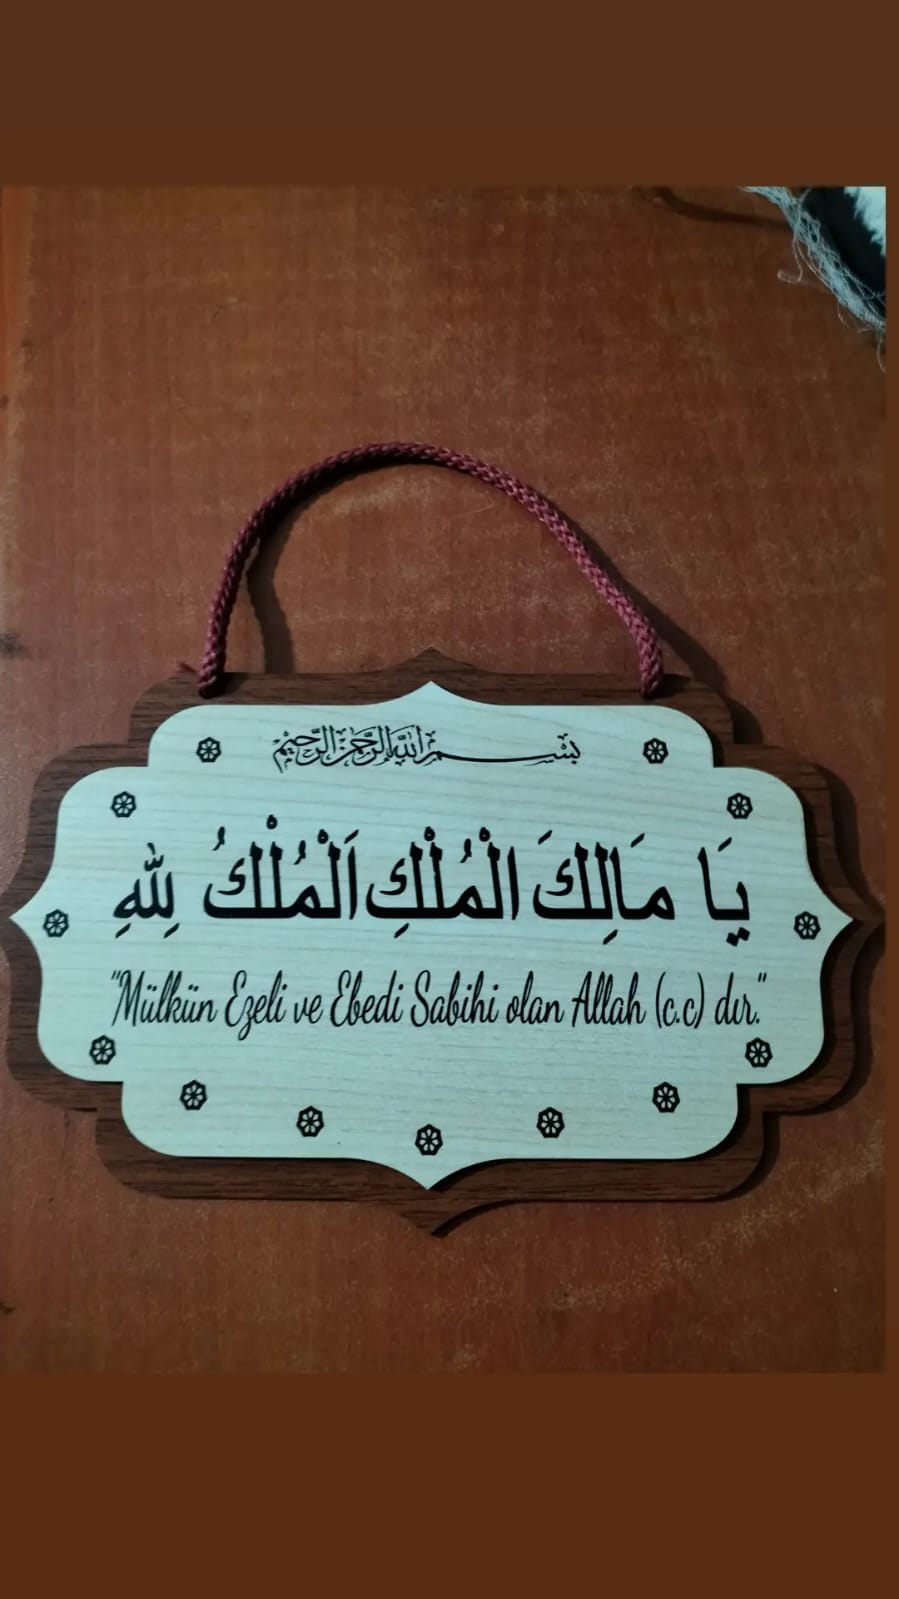 بسم الله الرحمن الرحيم
يَا مَالِكَ الْمُلْكِ اَلْمُلْكُ لِلهِ
"Mülkün Ezeli ve Ebedi Sabihi olan Allah (c.c) dır."